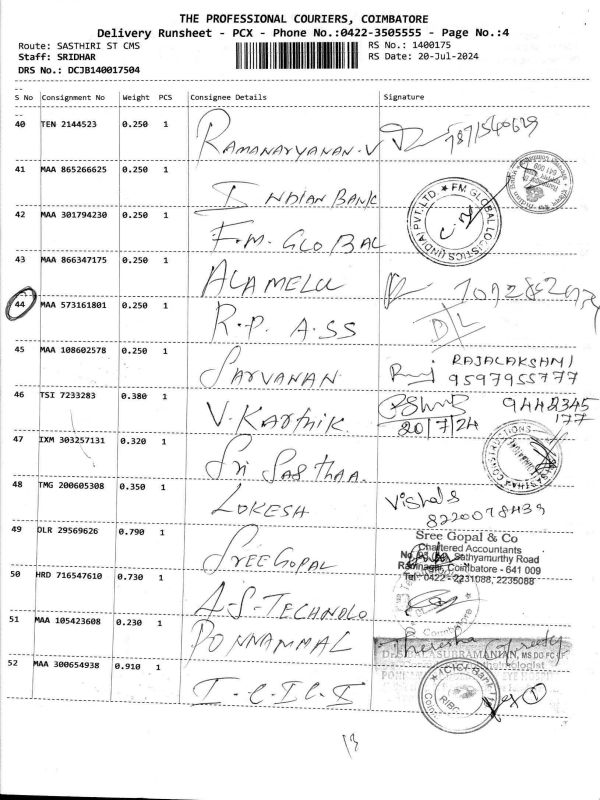 THE PROFESSIONAL COURIERS, COIMBATORE
Delivery Runsheet - PCX - Phone No.:0422-3505555 - Page No.:4
Route: SASTHIRI ST CMS
RS No.: 1400175
Staff: SRIDHAR
RS Date: 20-Jul-2024
DRS No.: DCJB140017504
S No Consignment No Weight PCS Consignee Details Signature
40 TEN 2144523 0.250 1 RAMANARYANAN.V
41 MAA 865266625 0.250 1 INDIAN BANK
42 MAA 301794230 0.250 1 F.M. GLOBAL
FM GLOBAL LOGISTICS (INDIA) PVT. LTD.
43 MAA 866347175 0.250 1 ALAMELU
44 MAA 573161801 0.250 1 R.P. ASS D/L
45 MAA 108602578 0.250 1 SARVANAN RAJALAKSHMI
9597955777
46 TSI 7233283 0.380 1 V. KARTHIK 9442345
177
20/7/24
47 IXM 303257131 0.320 1 SRI SASTHAA
48 TMG 200605308 0.350 1 LOKESH Vishal S
8220078433
49 DLR 29569626 0.790 1 SREE GOPAL
Sree Gopal & Co
Chartered Accountants
Sathyamurthy Road
Ramnagar, Coimbatore - 641 009
Tel: 0422 - 2231088, 2235088
50 HRD 716547610 0.730 1 A.S-TECHNOLO
Coimbatore
51 MAA 105423608 0.230 1 PONNAMMAL
52 MAA 300654938 0.910 1 I.C.I.C.I
ICICI Bank
13